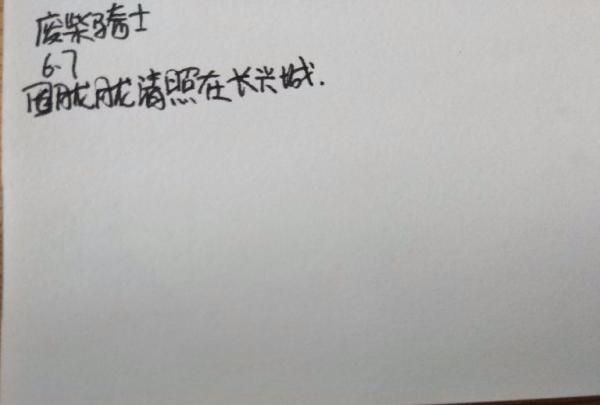 废柴骑士
6.7
圆胧胧清照在长兴城.